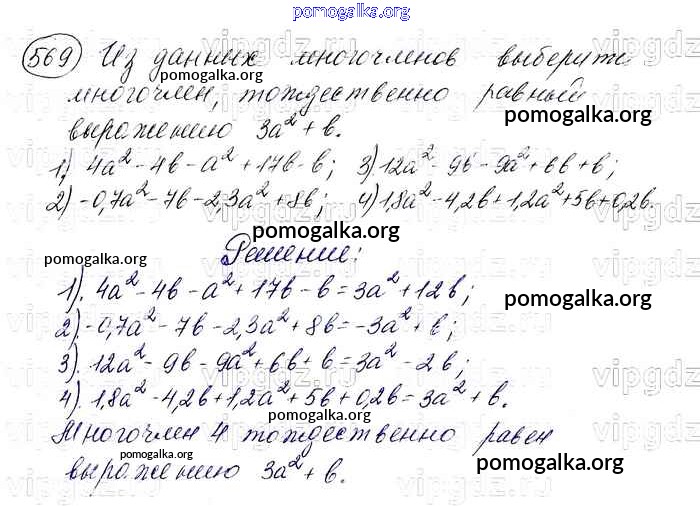 pomogalka.org
569) Из данных многочленов выберите
pomogalka.org
многочлен, тождественно равный
pomogalka.org
выражению 3a² + b.
1) 4a² - 4b - a² + 17b - b; 3) 12a² - 9b - 9a² + 6b + b;
2) -0,7a² - 7b - 2,3a² + 8b; 4) 1,8a² - 4,2b + 1,2a² + 5b + 0,2b.
pomogalka.org
Решение:
pomogalka.org
1). 4a² - 4b - a² + 17b - b = 3a² + 12b;
pomogalka.org
2). -0,7a² - 7b - 2,3a² + 8b = -3a² + b;
3). 12a² - 9b - 9a² + 6b + b = 3a² - 2b;
4). 1,8a² - 4,2b + 1,2a² + 5b + 0,2b = 3a² + b.
pomogalka.org
Многочлен 4 тождественно равен
pomogalka.org
выражению 3a² + b.
pomogalka.org